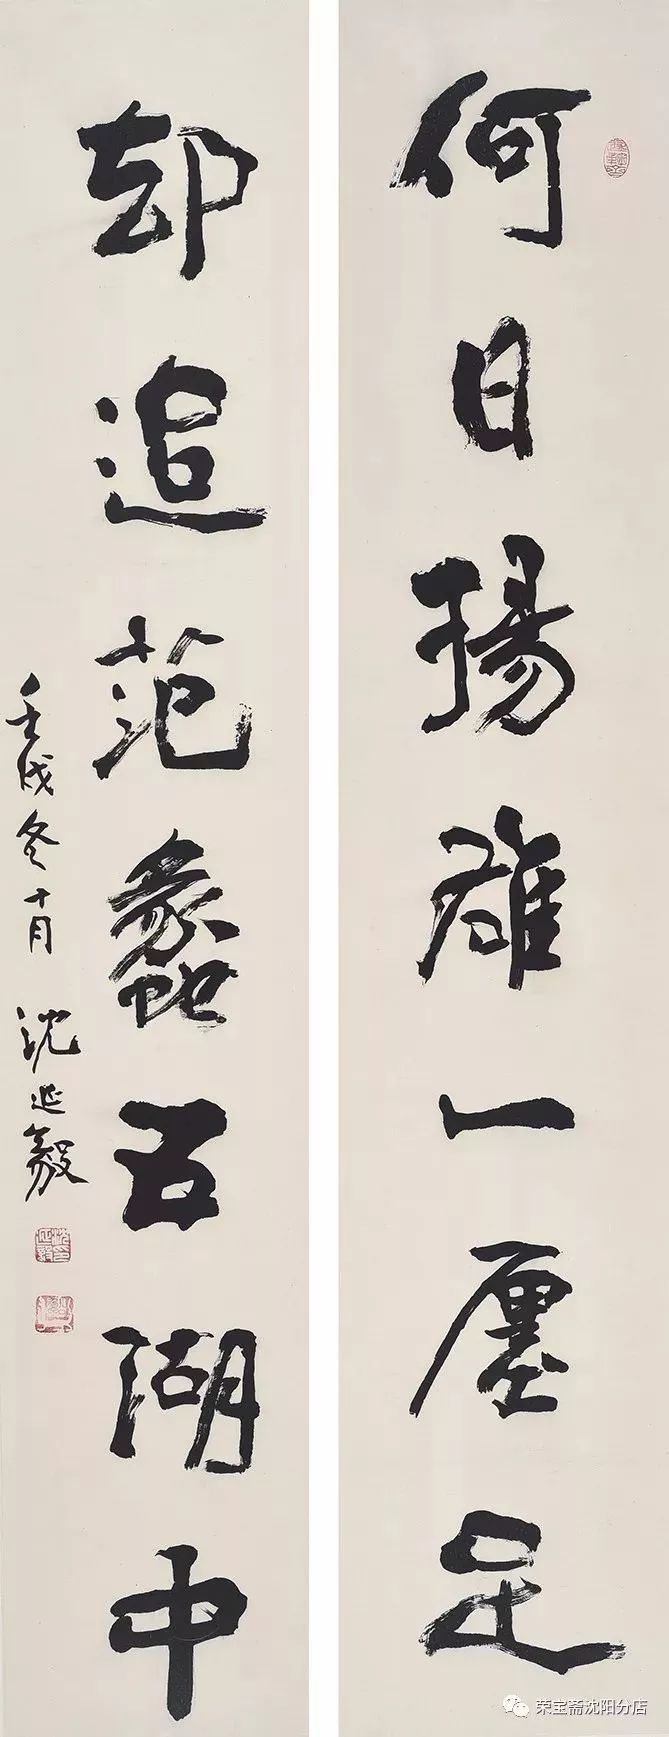 何日揚雄一廛足
却追范蠡五湖中
壬戌冬十月 沈延毅
荣宝斋沈阳分店